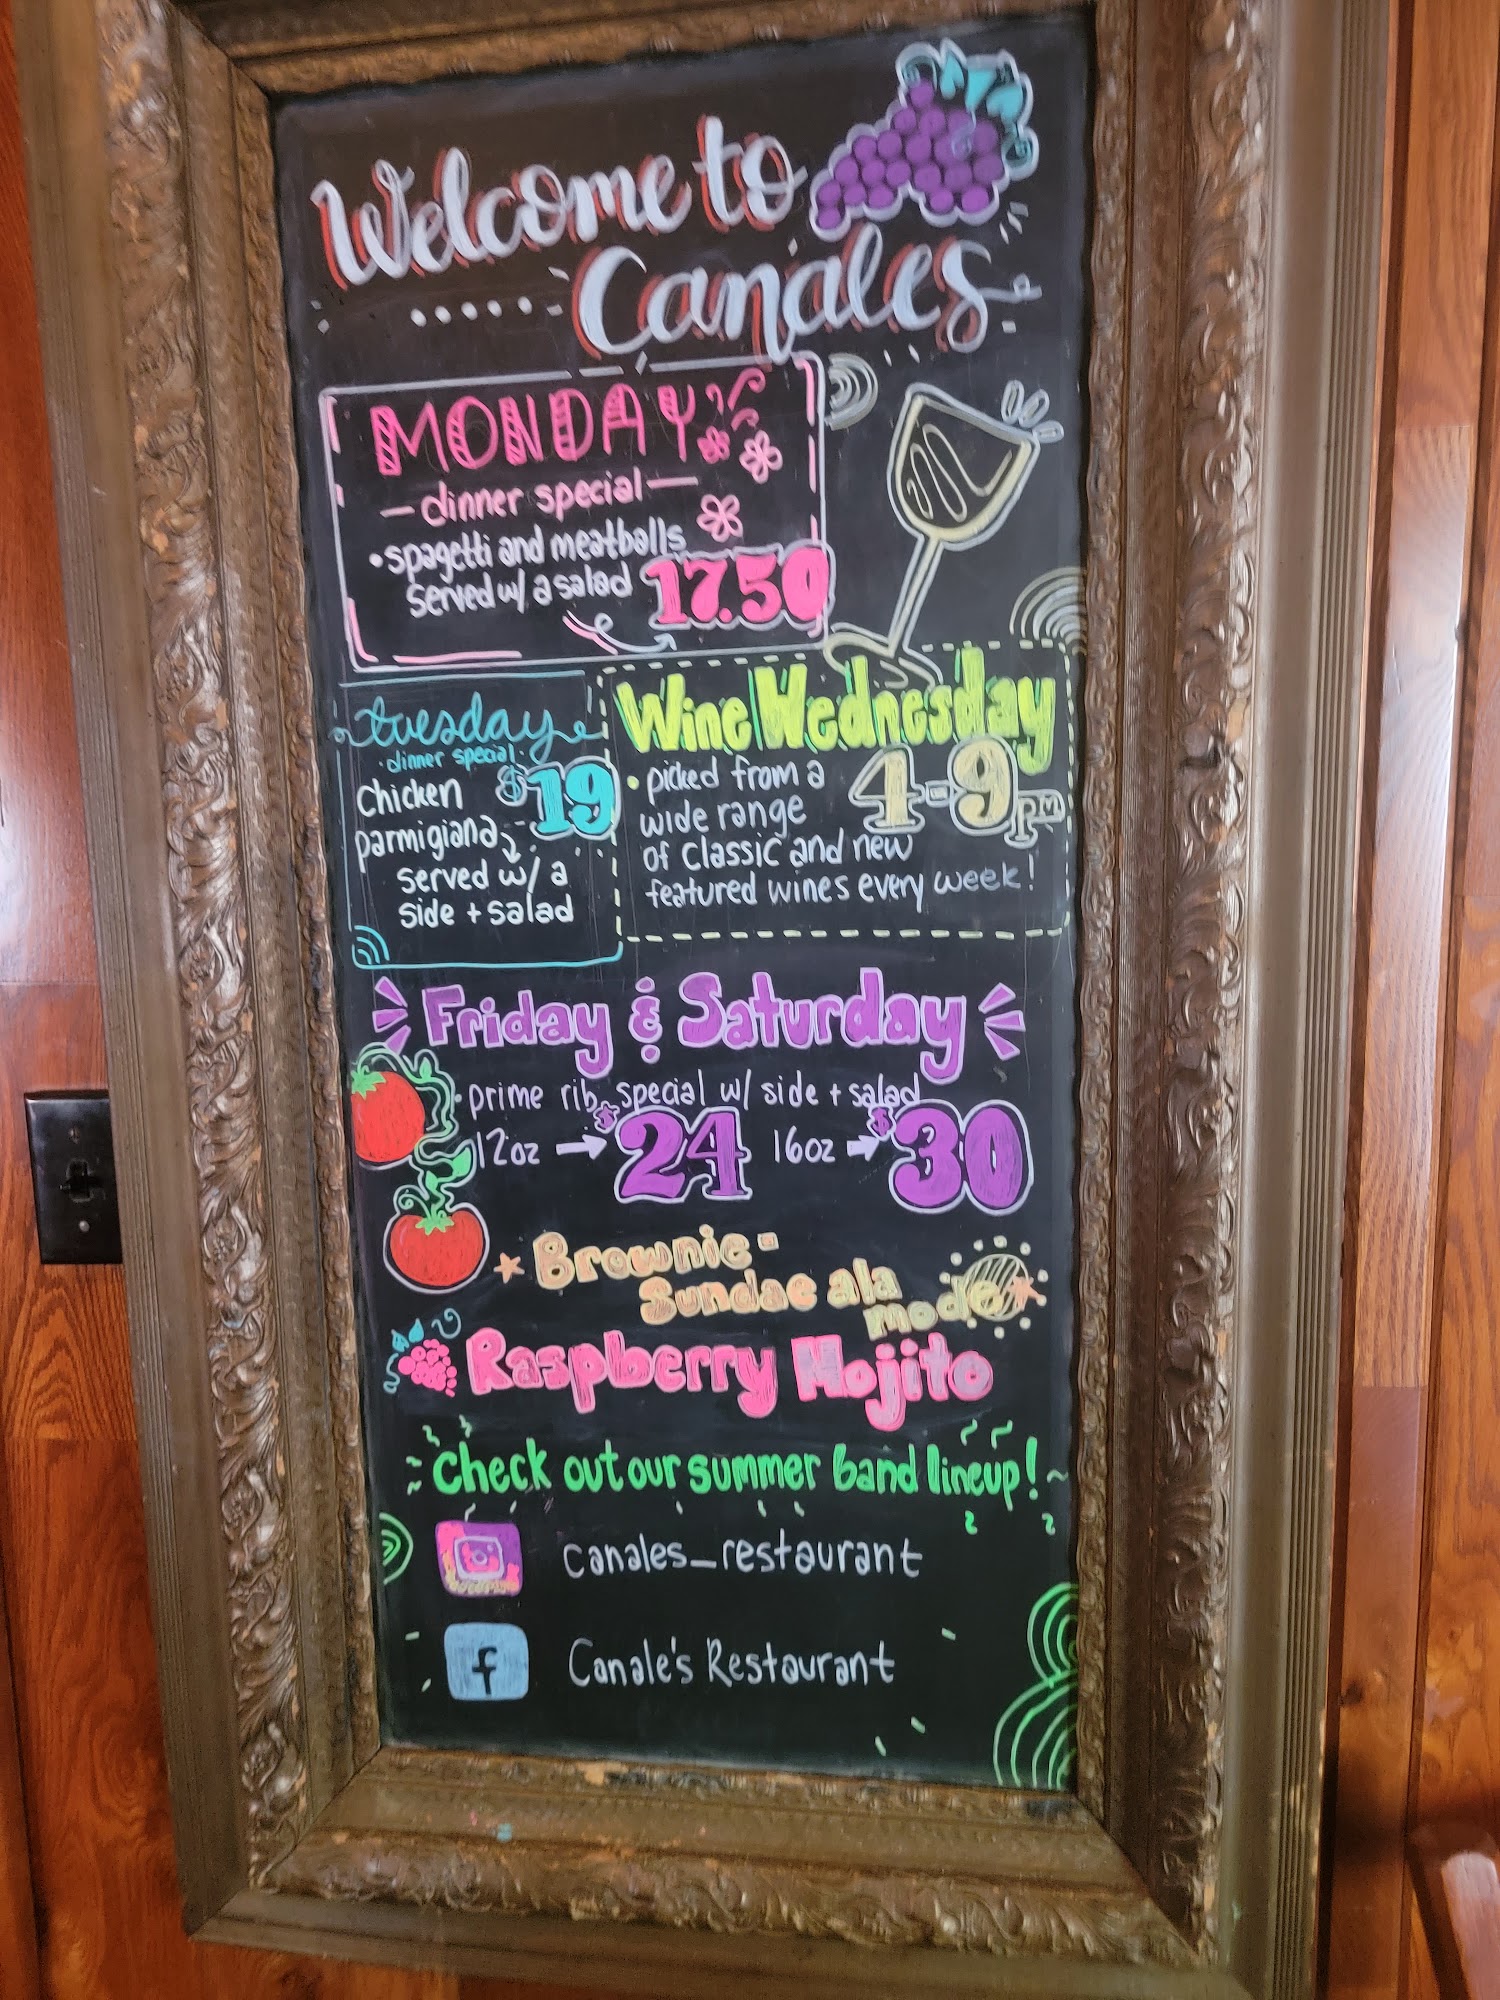 Welcome to
Canales
MONDAY
dinner special
• spagetti and meatballs
served w/ a salad 17.50
tuesday
• dinner special •
$19
Chicken
parmigiana
served w/ a
side + salad
Wine Wednesday
4-9pm
• picked from a
wide range
of classic and new
featured wines every week!
Friday & Saturday
• prime rib special w/ side + salad
12oz → $24 16oz → $30
Brownie-
Sundae ala
mode
Raspberry Mojito
Check out our summer band lineup!
canales_restaurant
f Canale's Restaurant